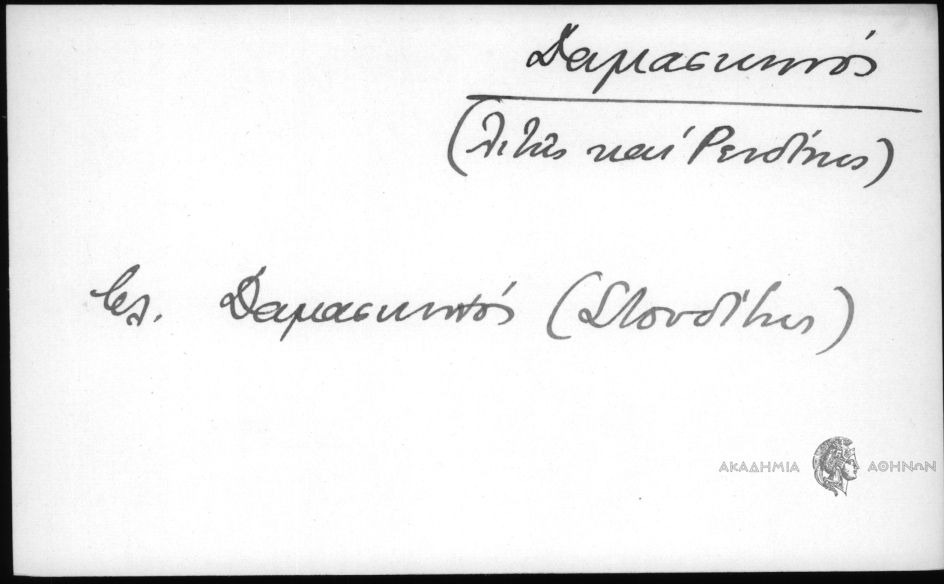 Δαμασκηνός
(Λιτῆς καί Ρενδίνης)
βλ. Δαμασκηνός (Στουδίτης)
ΑΚΑΔΗΜΙΑ ΑΘΗΝΩΝ